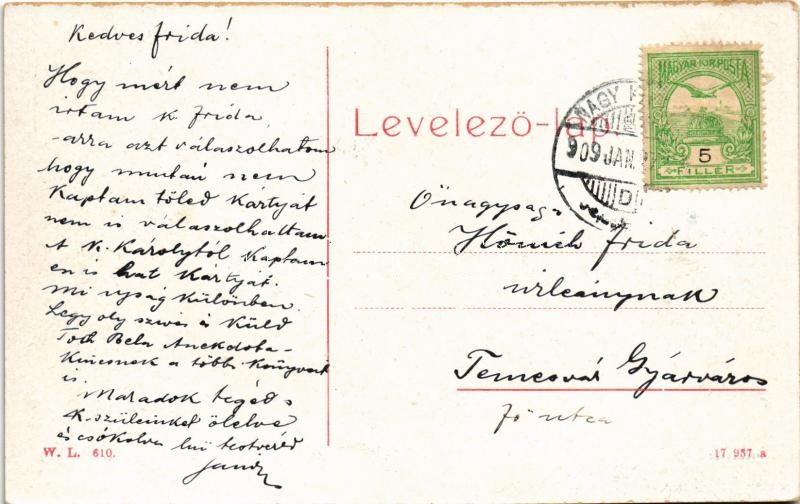 Kedves frida!
Hogy mért nem
irtam k. frida,
arra azt válaszolhatom
hogy miután nem
Kaptam tőled kártyát
nem is válaszolhattam
A K. Károlytól kaptam
en is hat kártyát.
Mi ujság különben.
Legy oly szives és küld
Toth Bela Anekdota-
Kincsnek a többi könyveit
is.
Maradok téged s
K. szüleinket ölelve
és csókolva hű testvéred
Levelező-lap
MAGYAR KIR. POSTA
5
FILLÉR
NAGY K
909 JAN.
D
Önagysága
frida
urleánynak
Temesvár Gyárváros
fő utca
W. L. 610.
17 937 a